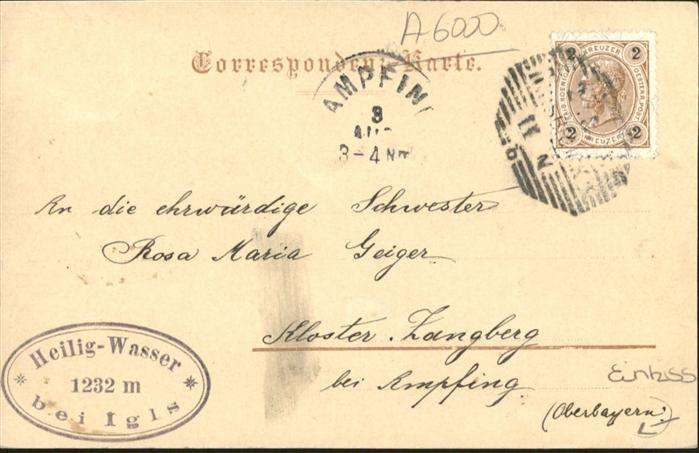 A6000
Correspondenz-Karte.
AMPFIN
8
AUG
3-4 Nm
2 KREUZER 2
2 KREUZER 2
An die ehrwürdige Schwester
Rosa Maria Geiger
Kloster Zangberg
bei Ampfing
(Oberbayern)
Heilig-Wasser
1232 m
bei Igls